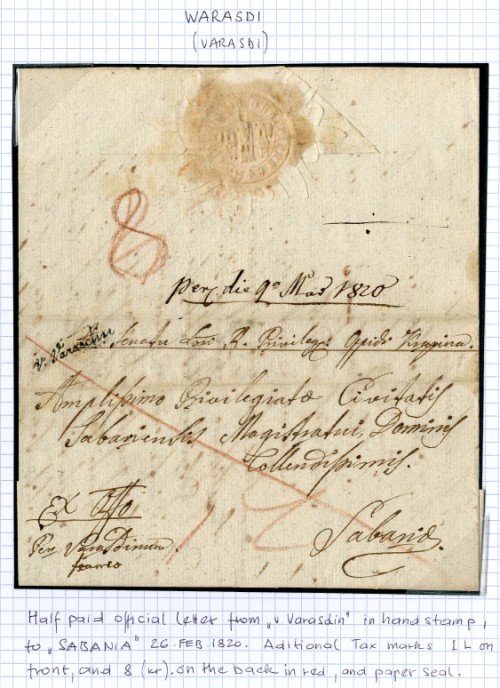 WARASDI
(VARASDI)
8
perc. die 9a Mar 1820
v. Varasdin
Senatu Lib. R. Privileg. Oppidi Krapina.
Amplissimo Privilegiatæ Civitatis
Sabariensis Magistratui, Dominis
Collendissimis.
Ex Offo
Per Varasdinum
franco
Sabariæ
Half paid official letter from „v Varasdin" in handstamp,
to „SABANIA" 26. FEB 1820. Aditional Tax marks 1 L on
front, and 8 (kr). on the back in red, and paper seal.